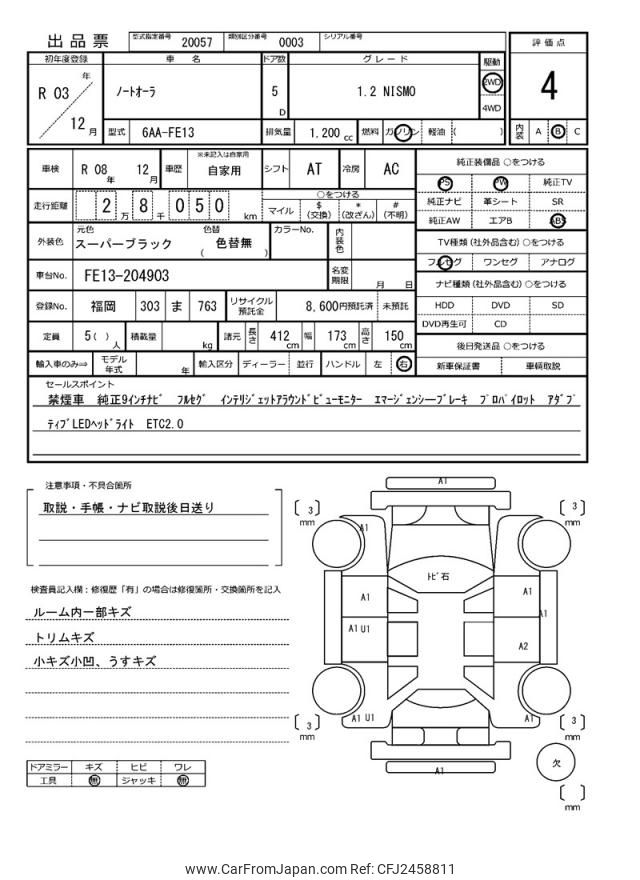 出品票 型式指定番号 20057 類別区分番号 0003 シリアル番号
評価点
4
内装 A B C
初年度登録 車名 ドア数 グレード 駆動
R 03 年 12 月 ノートオーラ 5 D 1.2 NISMO 2WD 4WD
型式 6AA-FE13 排気量 1.200 cc 燃料 ガソリン 軽油 ( )
車検 R 08 年 12 月 車歴 ※未記入は自家用 自家用 シフト AT 冷房 AC
走行距離 2 万 8 千 0 5 0 km ○をつける マイル $ (交換) * (改ざん) # (不明)
外装色 元色 スーパーブラック 色替 ( 色替無 ) カラーNo. 内装色
車台No. FE13-204903 名変期限 月 日
登録No. 福岡 303 ま 763 リサイクル預託金 8,600円預託済 未預託
定員 5( )人 積載量 kg 諸元 長さ 412 cm 幅 173 cm 高さ 150 cm
輸入車のみ⇒ モデル年式 年 輸入区分 ディーラー 並行 ハンドル 左 右
純正装備品 ○をつける
PS PW 純正TV
純正ナビ 革シート SR
純正AW エアB ABS
TV種類 (社外品含む) ○をつける
フルセグ ワンセグ アナログ
ナビ種類 (社外品含む) ○をつける
HDD DVD SD
DVD再生可 CD
後日発送品 ○をつける
新車保証書 車輌取説
セールスポイント
禁煙車 純正9インチナビ フルセグ インテリジェットアラウンドビューモニター エマージェンシーブレーキ プロパイロット アダプ
ティブLEDヘッドライト ETC2.0
注意事項・不具合箇所
取説・手帳・ナビ取説後日送り
検査員記入欄：修復歴「有」の場合は修復箇所・交換箇所を記入
ルーム内一部キズ
トリムキズ
小キズ小凹、うすキズ
ドアミラー キズ ヒビ ワレ
工具 無 ジャッキ 無
A1
3 mm
3 mm
A1
トビ石
A1
A1
A1
A1 U1
A2
A1 U1
A1
3 mm
3 mm
A1
欠
mm
www.CarFromJapan.com Ref: CFJ2458811